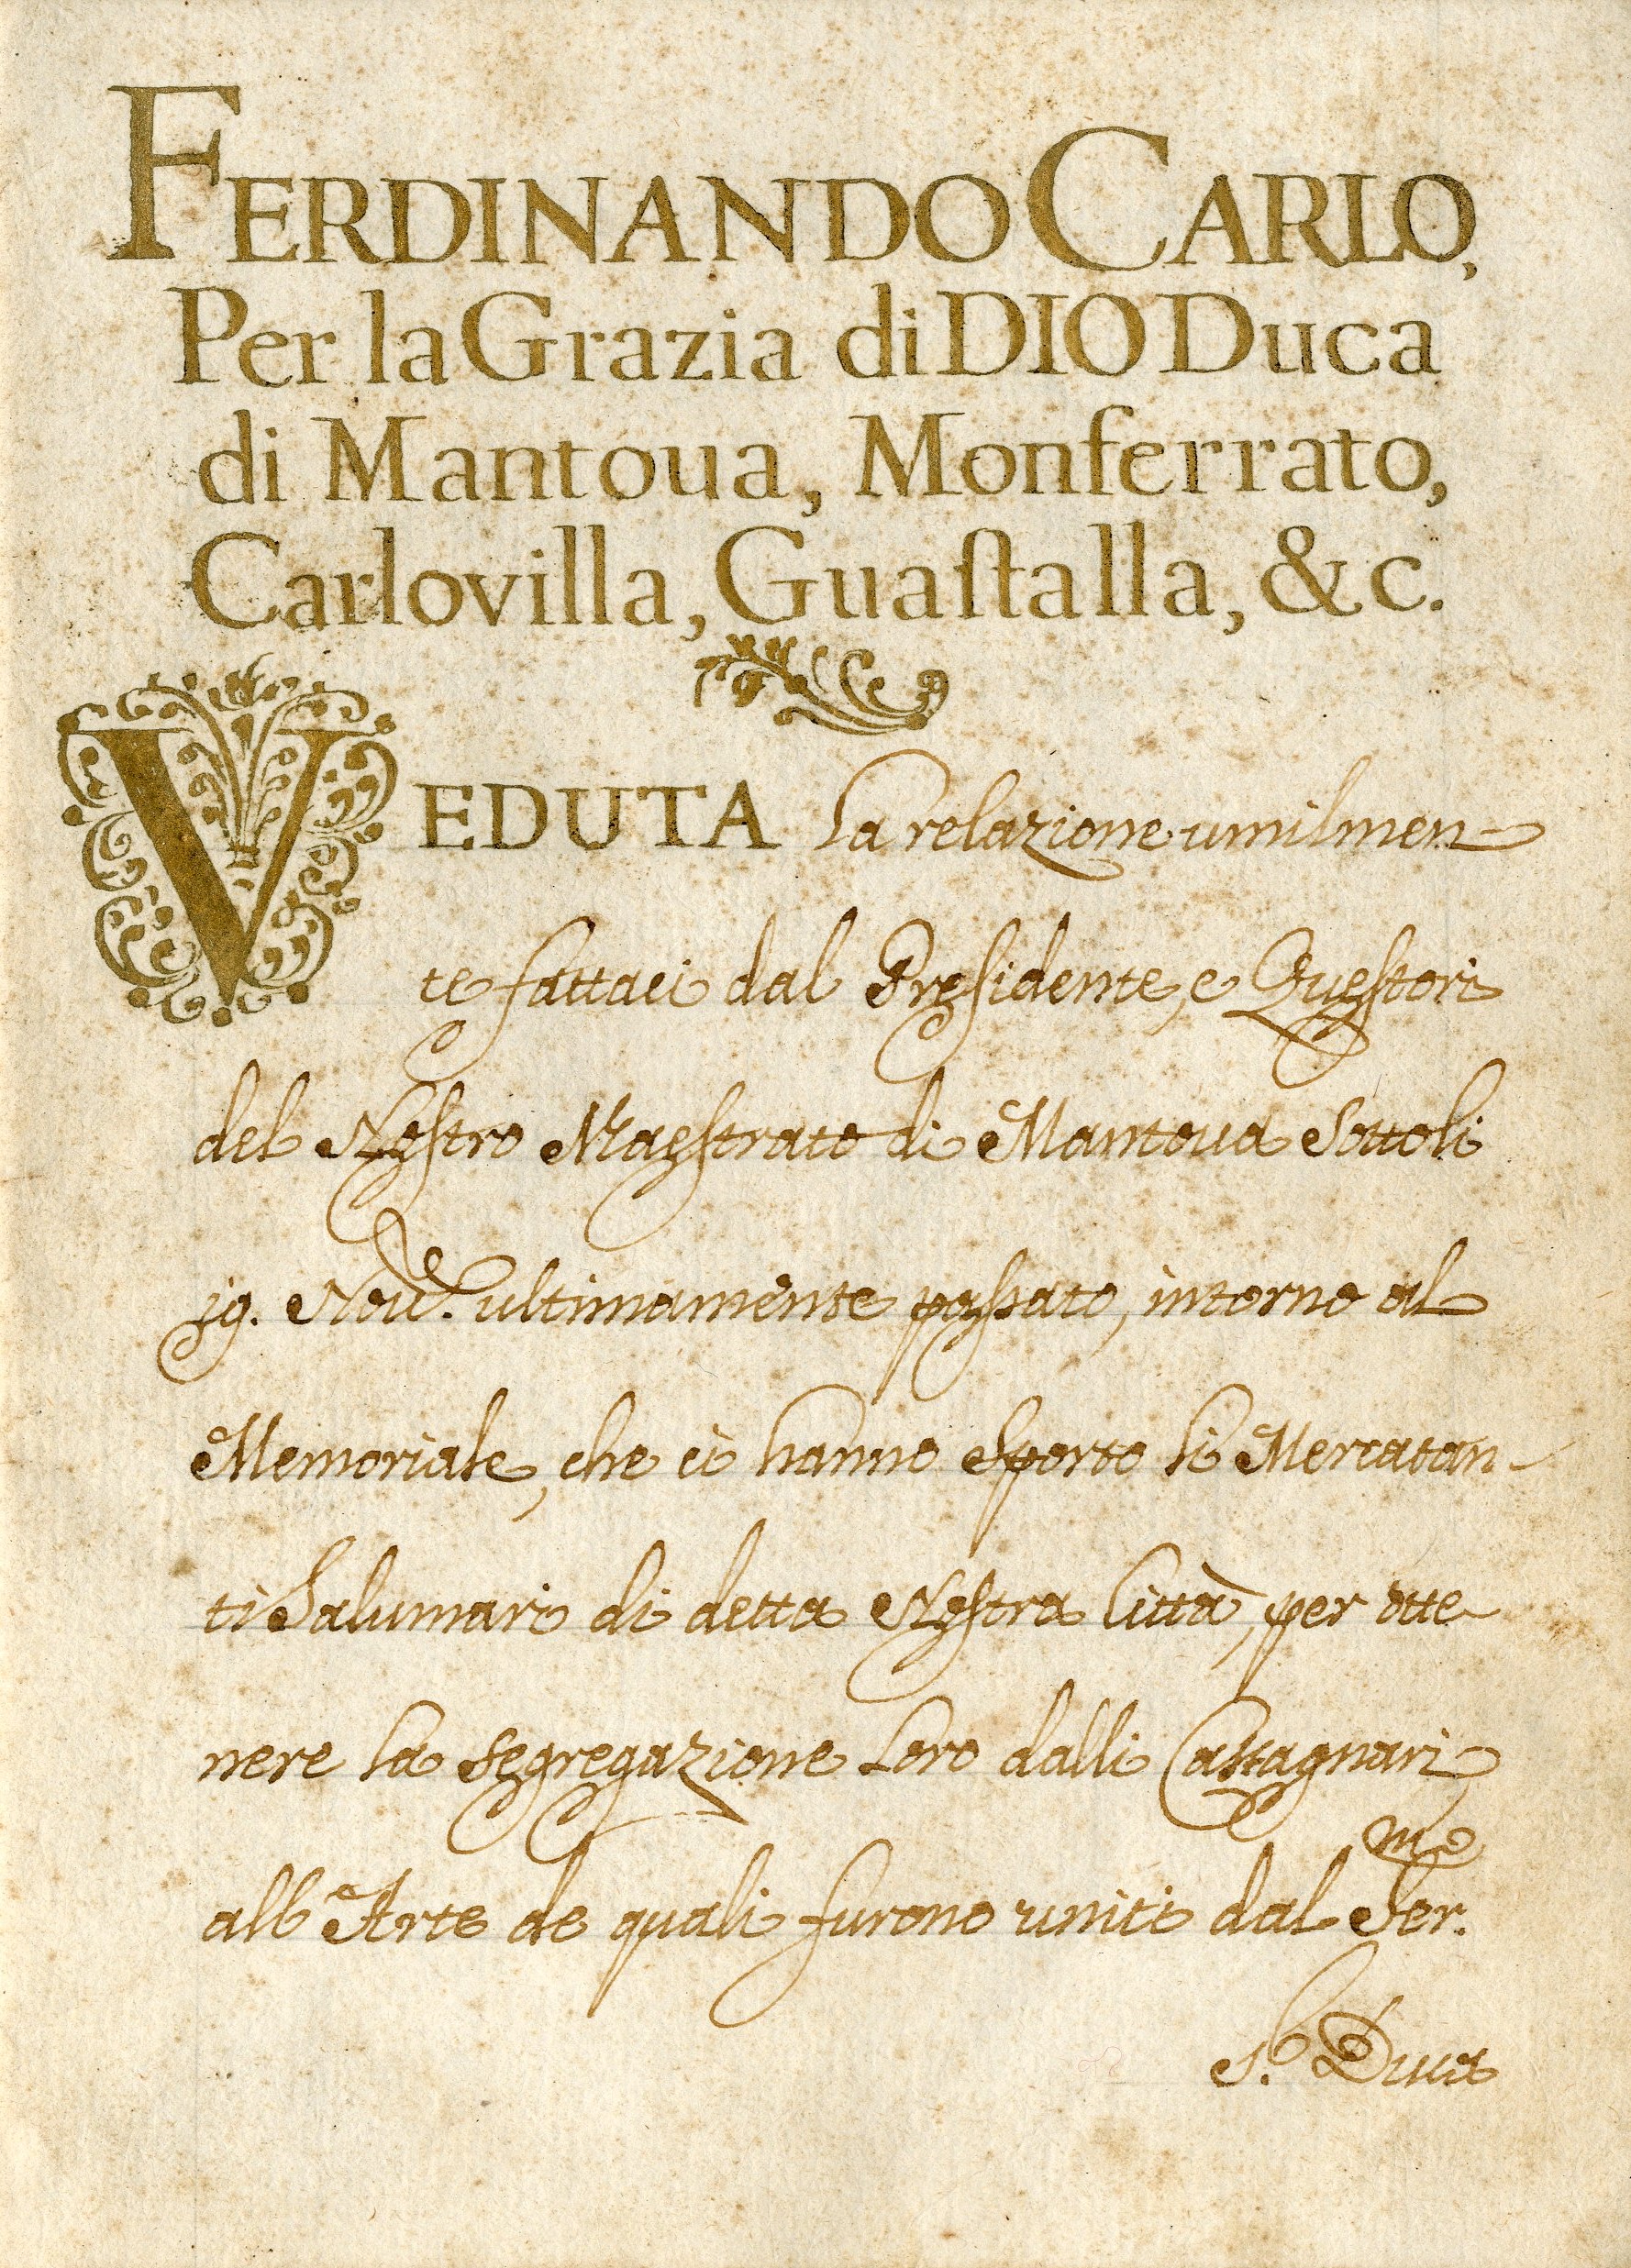 FERDINANDO CARLO,
Per la Grazia di DIO Duca
di Mantoua, Monferrato,
Carlovilla, Guaſtalla, &c.
VEDUTA la relazione umilmen-
te fattaci dal Presidente, e Questori
del Nostro Maestrato di Mantoua Sottoli
19. Nou.e ultimamente passato, intorno al
Memoriale, che ci hanno Sporto li Mercatan-
ti Salumari di detta Nostra Città, per otte-
nere la segregazione Loro dalli Castagnari
all'Arte de quali furono uniti dal Ser.mo
S. Duca